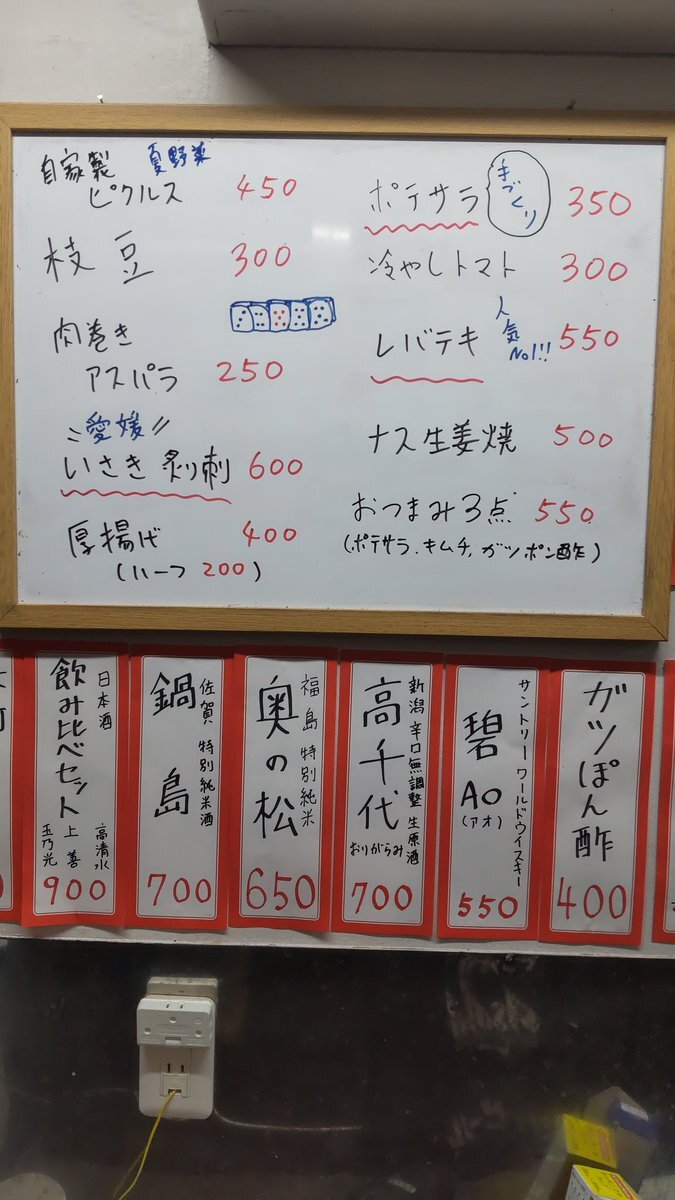 自家製 夏野菜
ピクルス 450
枝豆 300
肉巻き
アスパラ 250
愛媛
いさき炙り刺 600
厚揚げ 400
(ハーフ 200)
ポテサラ 手づくり 350
冷やしトマト 300
レバテキ 人気No1!! 550
ナス生姜焼 500
おつまみ3点 550
(ポテサラ、キムチ、ガツポン酢)
ガツぽん酢
400
サントリー ワールドウイスキー
碧 AO
(アオ)
550
新潟 辛口無調整 生原酒
高千代
おりがらみ
700
福島 特別純米
奥の松
650
佐賀 特別純米酒
鍋島
700
日本酒
飲み比べセット
高清水
上善
玉乃光
900